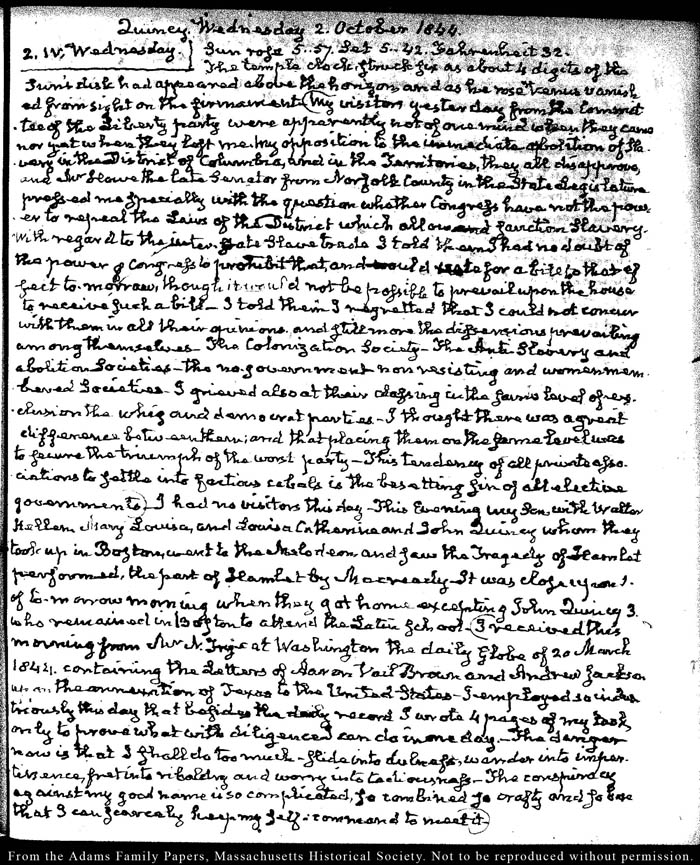 Quincy. Wednesday 2. October 1844.
2. IV. Wednesday. Sun rose 5..57. Set 5..42. Fahrenheit 32.
The temple clock, struck six as about 4 digits of the
Sun's disk had appeared above the horizon, and as he rose Venus vanish
ed from sight on the firmament. (My visitors yesterday from the Commit
tee of the Liberty party were apparently not of one mind when they came
nor yet when they left me. My opposition to the immediate abolition of Sla
very in the District of Columbia, and in the Territories, they all disapprove,
and Mr the late Senator from Norfolk County in the State Legislature
pressed me specially with the question whether Congress have not the pow-
er to repeal the Laws of the District which allow and sanction Slavery.
With regard to the inter-State Slave trade I told them I had no doubt of
the power of Congress to prohibit that, and would vote for a bill to that ef
fect to-morrow, though it would not be possible to prevail upon the house
to receive such a bill– I told them I regretted that I could not concur
with them in all their opinions, and still more the dissensions prevailing
among themselves– The Colonization Society– The Anti-Slavery and
abolition Societies– the no-government non resisting and women mem
bered Societies– I grieved also at their classing in the same level of ex-
clusion the whig and democrat parties– I thought there was a great
difference between them; and that placing them on the same level was
to secure the triumph of the worst party– This tendency of all private asso-
ciations to settle into factious cabals is the besetting sin of all elective
governments) I had no visitors this day– This Evening my Son, with Walter
Hellen, Mary Louisa, and Louisa Catherine and John Quincy whom they
took up in Boston, went to the Melodeon, and saw the Tragedy of Hamlet
performed, the part of Hamlet by Macready– It was close upon 1.
of to-morrow morning when they got home excepting John Quincy 3.
who remained in Boston to attend the Latin School– (I received this
morning from Mr N. at Washington the daily Globe of 20 March
1844. containing the Letters of Aaron Vail Brown and Andrew Jackson
upon the annexation of Texas to the United States– I employed so indus
triously this day that besides the daily record I wrote 4 pages of my task,
only to prove what with diligence I can do in one day– The danger
now is that I shall do too much– slide into dulness, wander into imper-
tinence, fret into ribaldry and worry into tediousness– The conspiracy
against my good name is so complicated, so combined so crafty and so base
that I can scarcely keep my self-command to meet it.)
From the Adams Family Papers, Massachusetts Historical Society. Not to be reproduced without permission.